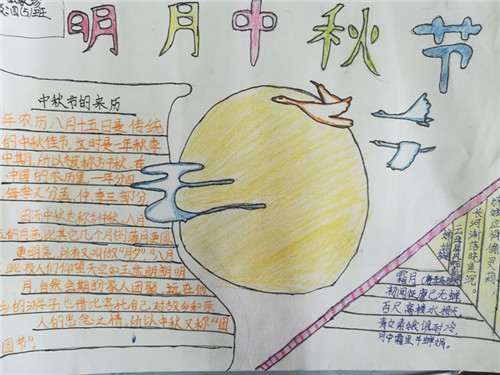 四(5)班
明月中秋节
中秋节的来历
年农历八月十五日是传统
的中秋佳节,这时是一年秋季
中期,所以被称为中秋。在
中国的农历里,一年分四
季,每季又分孟、仲、季三部分,
因而中秋也称为仲秋。八月
的月亮比其它几个月的满月更圆
更明亮,所以又叫做"月夕""八月
此夜人们仰望天空如玉盘明朗明月
自然会期盼家人团聚。远在他
乡的游子也借此寄托自己对故乡和亲
人的思念之情,所以中秋又称"团
圆节"。
嫦娥
云母屏风烛影深
长河渐落晓星沉
嫦娥应悔偷灵药
霜月(唐李商隐)
初闻征雁已无蝉
百尺高楼水接天
青女素娥俱耐冷
月中霜里斗婵娟。